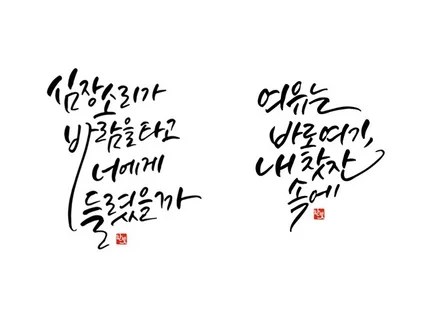 심장소리가
바람을타고
너에게
들렸을까
여유는
바로여기,
내 찻잔
속에